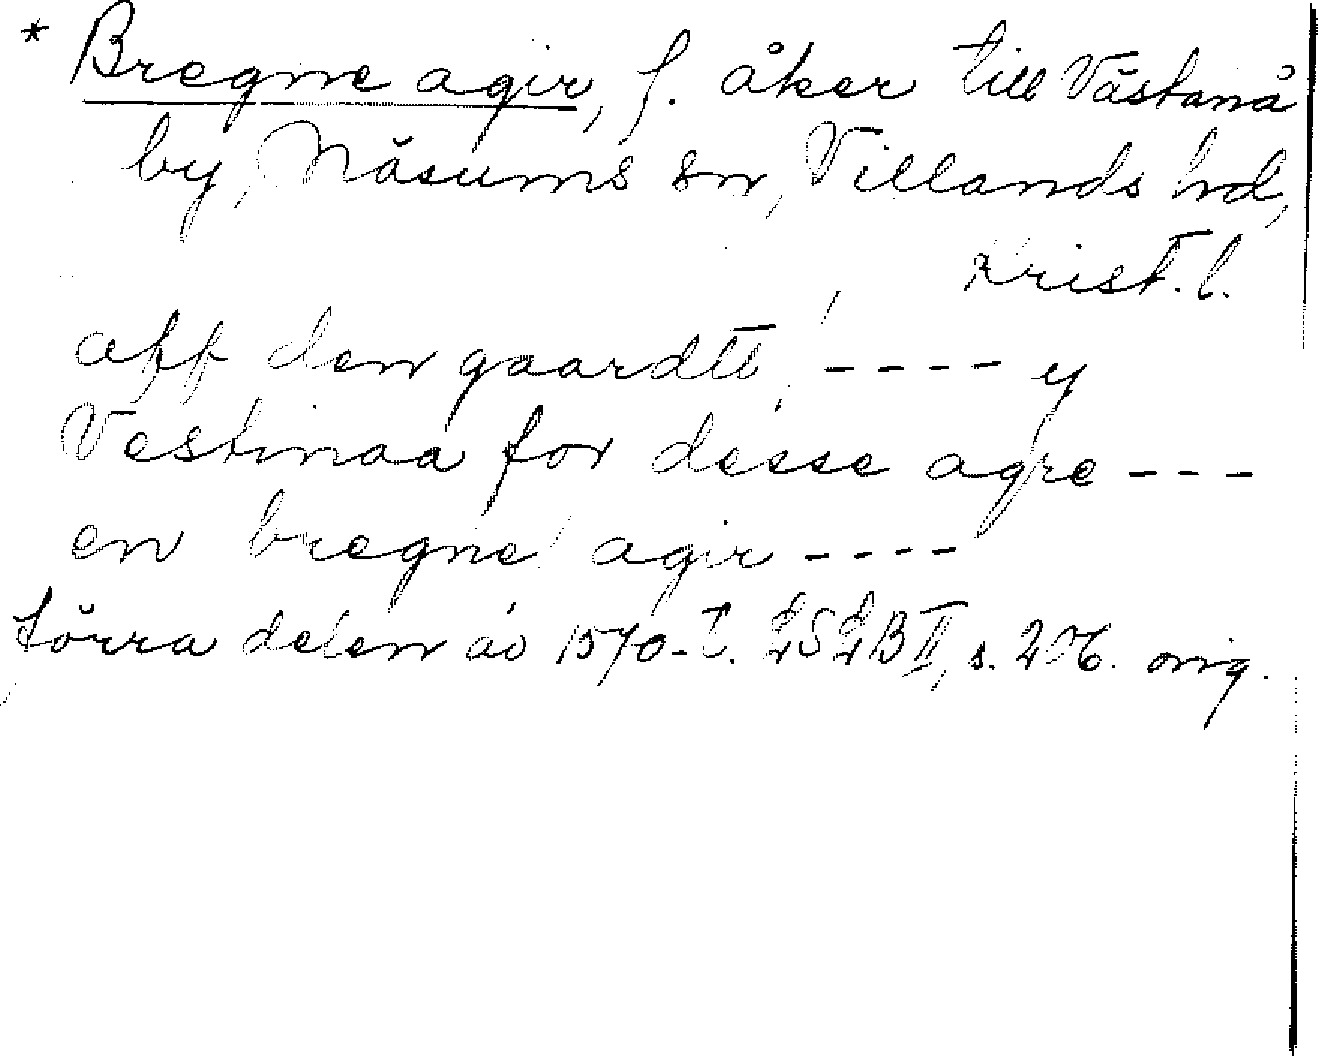 * Bregne agir, f. åker till Västanå
by, Näsums sn, Villands hd,
Krist. l.
aff den gaardtt, - - - - y
Vestinaa for desse agre - - -
en bregne agir - - - -
förra delen av 1570-t. LSLB II, s. 206. orig.